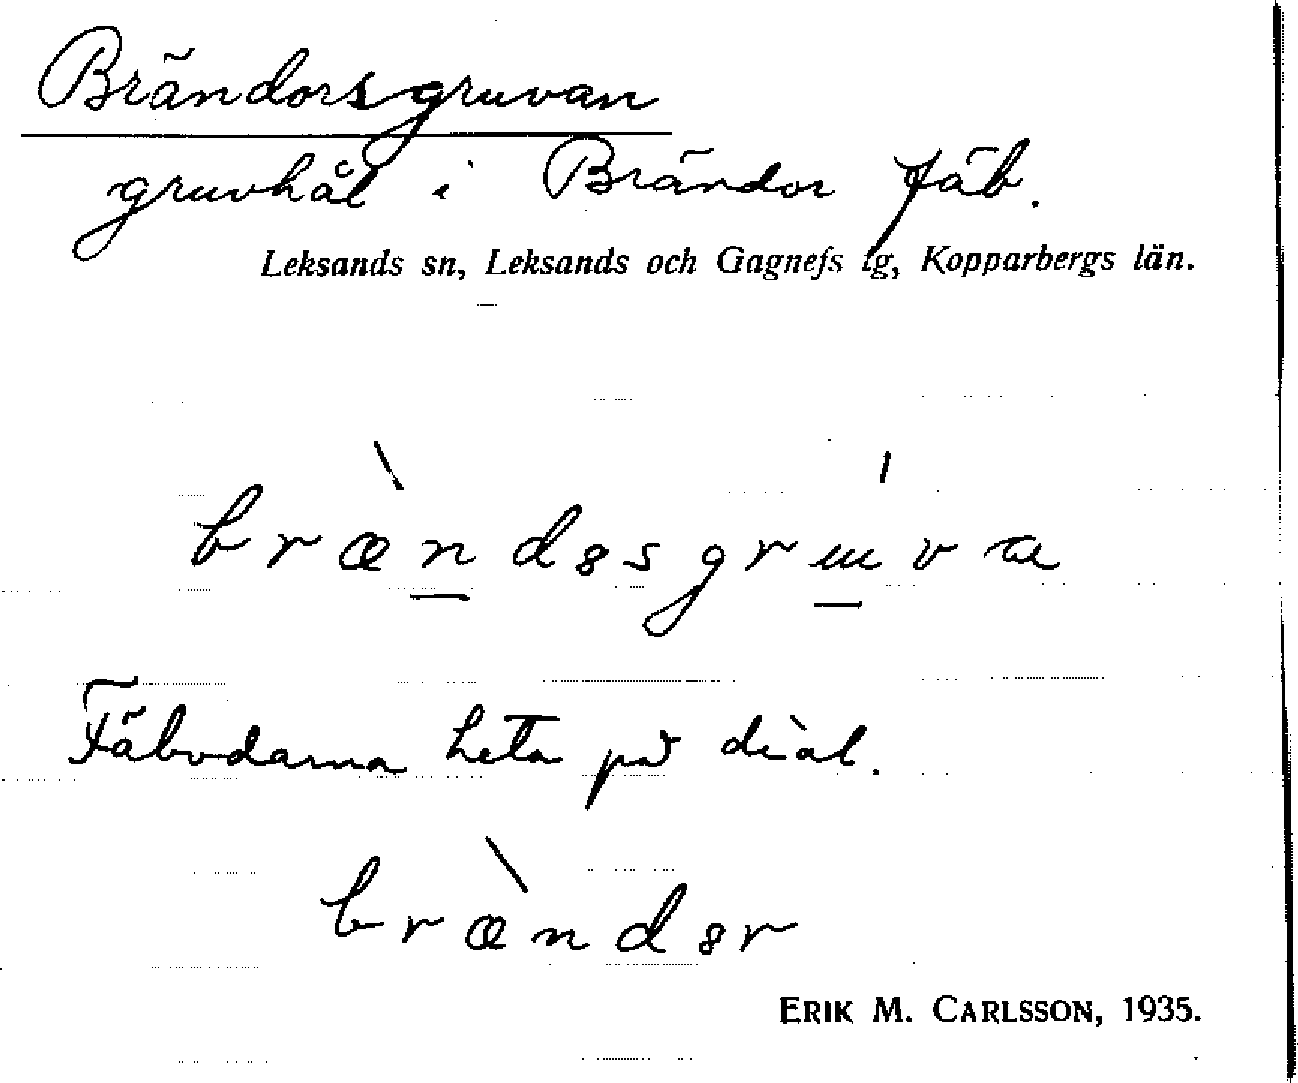 Brändorsgruvan
gruvhål i Brändor fäb.
Leksands sn, Leksands och Gagnefs tg, Kopparbergs län.
bræ̀nd8sgrɯ́va
Fäbodarna heta på dial.
bræ̀nd8r
ERIK M. CARLSSON, 1935.